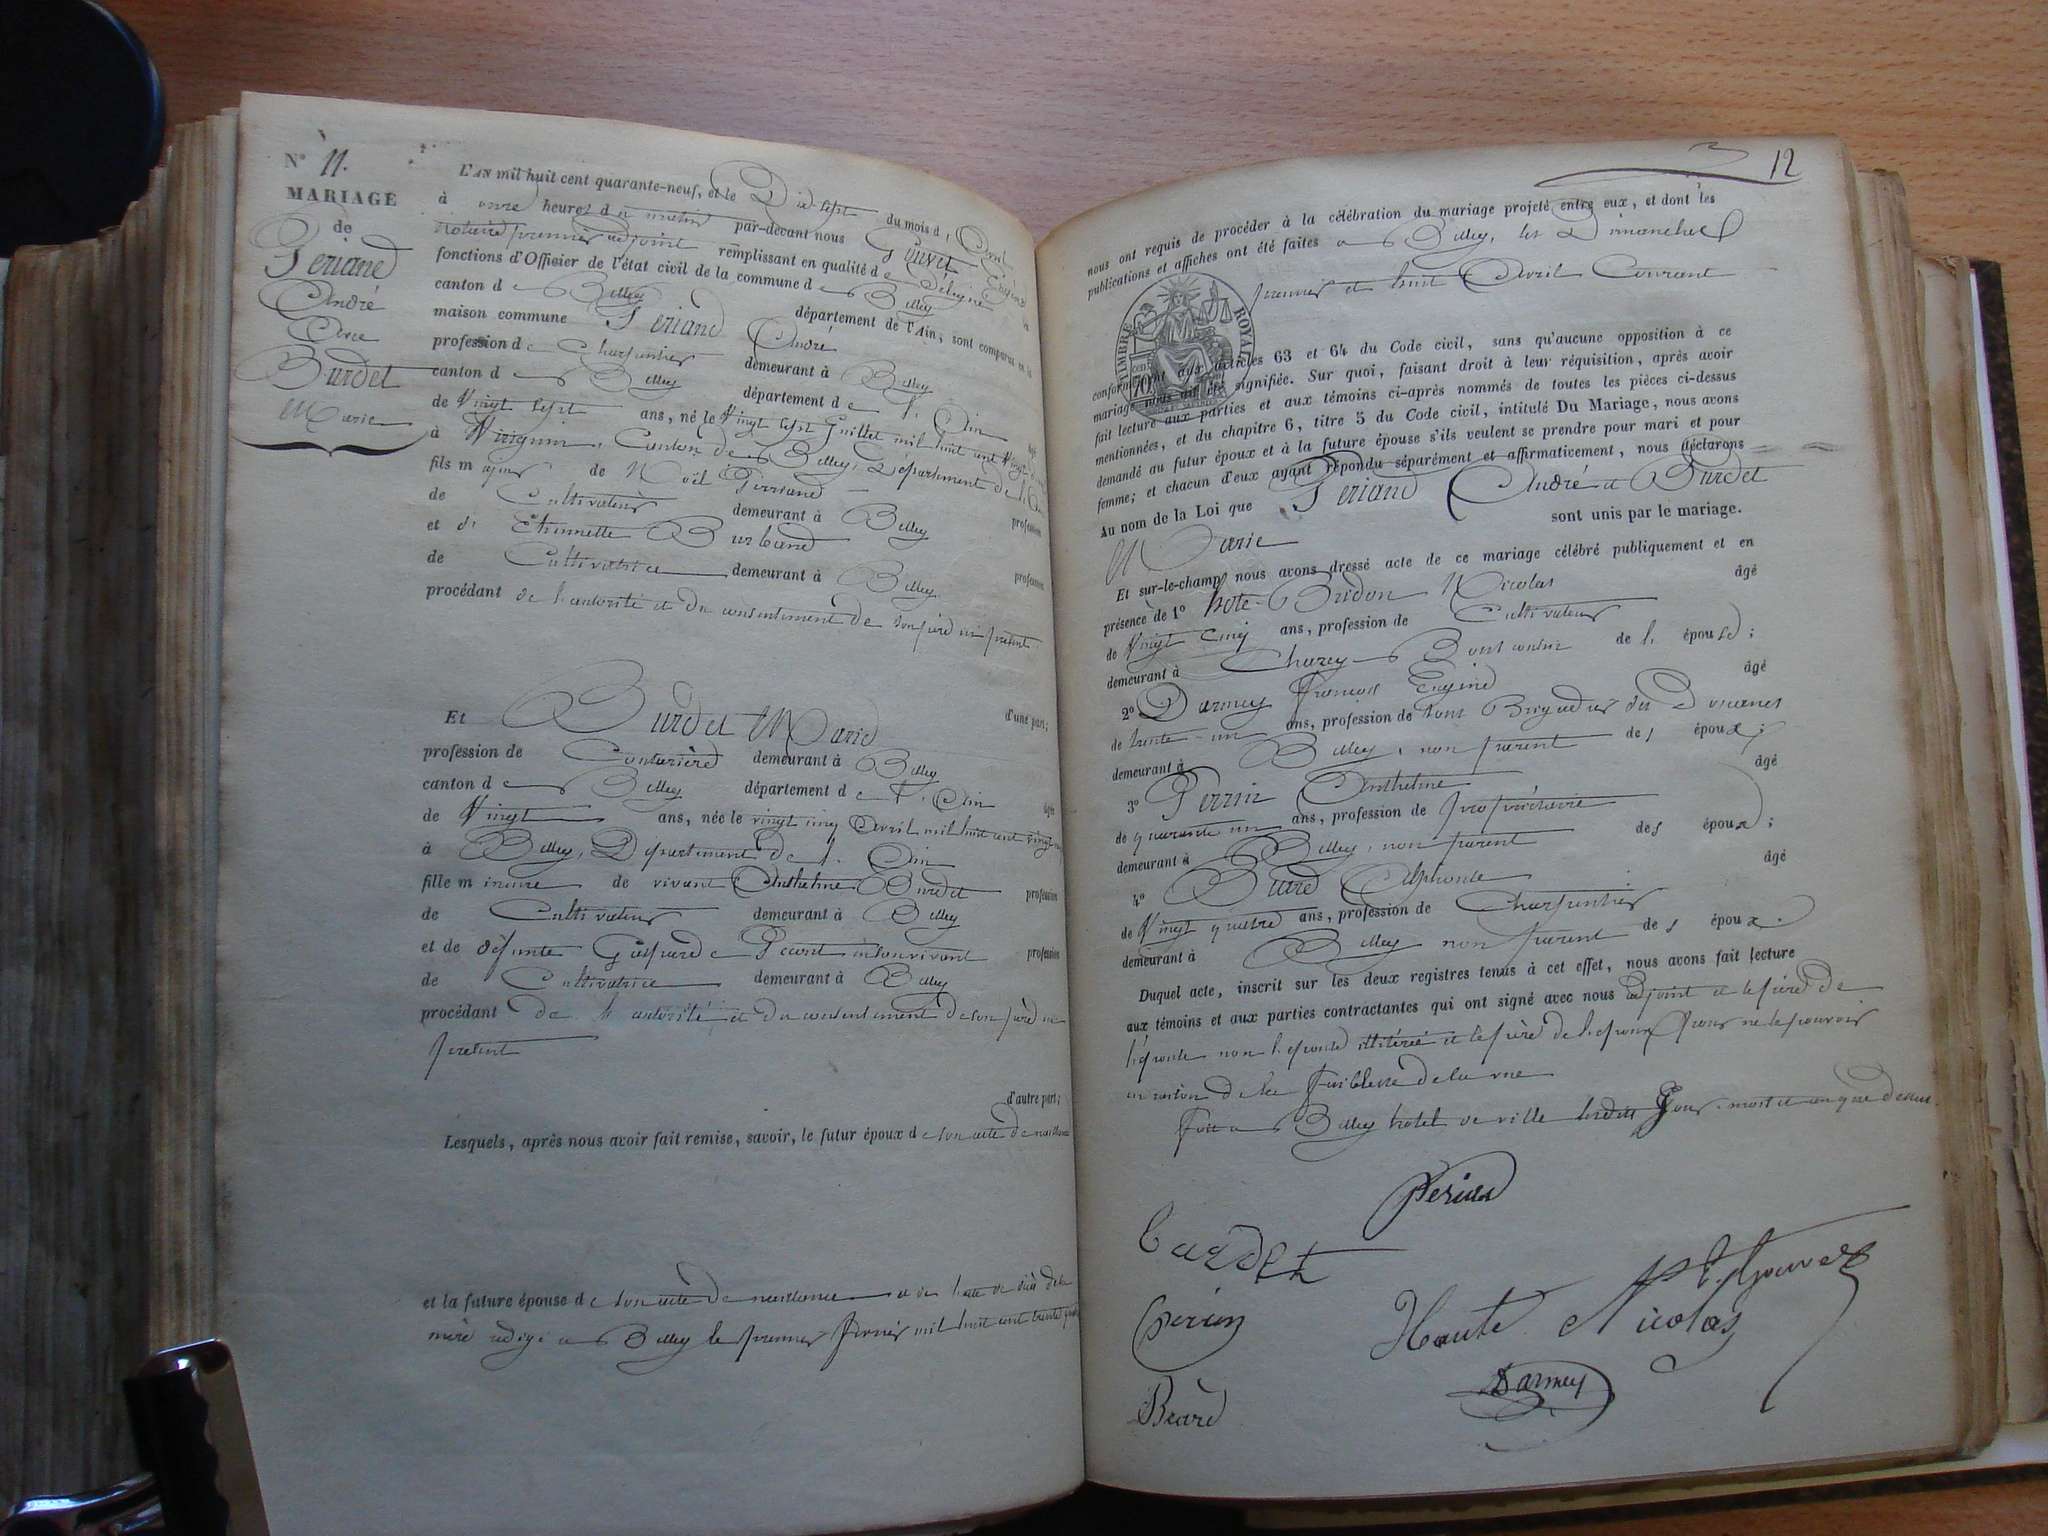 N° 11.
MARIAGE
de
Periand
André
Avec
Burdet
Marie
L'AN mil huit cent quarante-neuf, et le Dix sept du mois d'Avril
à onze heures du matin par-devant nous Gouvet Eugène
notaire premier adjoint remplissant en qualité de Délégué les
fonctions d'Officier de l'état civil de la commune de Belley
canton de Belley département de l'Ain, sont comparus en la
maison commune Periand André
profession de Charpentier demeurant à Belley
canton de Belley département de l'Ain âgé
de Vingt sept ans, né le Vingt sept Juillet mil huit cent vingt
à Virignin, Canton de Belley, Département de l'Ain
fils majeur de Noël Perriand profession
de Cultivateur demeurant à Belley
et d' Etiennette Burband profession
de Cultivatrice demeurant à Belley
procédant de l'autorité et du consentement de son père ici présent
d'une part;
Et Burdet Marie
profession de Couturière demeurant à Belley
canton de Belley département de l'Ain âgée
de Vingt ans, née le vingt cinq Avril mil huit cent vingt
à Belley, Département de l'Ain
fille mineure de vivant Anthelme Burdet profession
de Cultivateur demeurant à Belley
et de défunte Gasparde en son vivant profession
de Cultivatrice demeurant à Belley
procédant de l'autorité et du consentement de son père ici
présent
d'autre part;
Lesquels, après nous avoir fait remise, savoir, le futur époux de son acte de naissance
et la future épouse de son acte de naissance et de l'acte de décès de la
mère rédigé à Belley le premier Février mil huit cent trente
12
nous ont requis de procéder à la célébration du mariage projeté entre eux, et dont les
publications et affiches ont été faites à Belley, les Dimanches
premier et huit Avril Courant
TIMBRE ROYAL
70 CENT
conformément aux articles 63 et 64 du Code civil, sans qu'aucune opposition à ce
mariage nous ait été signifiée. Sur quoi, faisant droit à leur réquisition, après avoir
fait lecture aux parties et aux témoins ci-après nommés de toutes les pièces ci-dessus
mentionnées, et du chapitre 6, titre 5 du Code civil, intitulé Du Mariage, nous avons
demandé au futur époux et à la future épouse s'ils veulent se prendre pour mari et pour
femme; et chacun d'eux ayant répondu séparément et affirmativement, nous déclarons
Au nom de la Loi que Periand André et Burdet
Marie sont unis par le mariage.
Et sur-le-champ nous avons dressé acte de ce mariage célébré publiquement et en
présence de 1° hote Bridon Nicolas âgé
de Vingt cinq ans, profession de Cultivateur
demeurant à Charey de l'épouse;
2° Darmey François Eugène âgé
de trente un ans, profession de sous Brigadier des Douanes
demeurant à Belley, non parent des époux;
3° Perrin Anthelme âgé
de quarante un ans, profession de propriétaire
demeurant à Belley, non parent des époux;
4° Biard Alphonse âgé
de Vingt quatre ans, profession de Charpentier
demeurant à Belley non parent des époux.
Duquel acte, inscrit sur les deux registres tenus à cet effet, nous avons fait lecture
aux témoins et aux parties contractantes qui ont signé avec nous adjoint et le père de
l'épouse non l'épouse illitérée et le père de l'époux pour ne le pouvoir
en raison de la faiblesse de la vue
Fait à Belley hôtel de ville lesdits Jour, mois et an que dessus.
Periad
Burdet
E. Gouvet
Périn
Haute Nicolas
Darmey
Beard